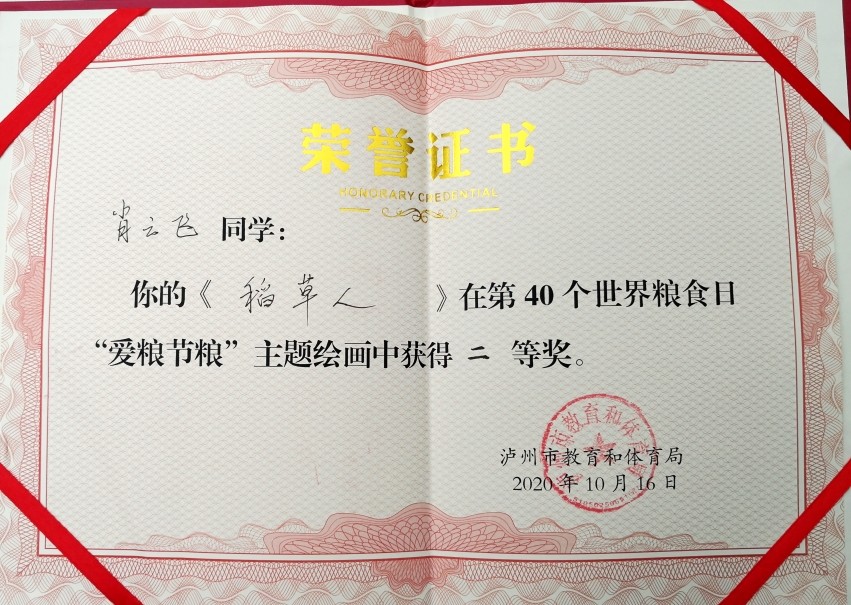 荣誉证书
HONORARY CREDENTIAL
肖云飞 同学:
你的《 稻草人 》在第40个世界粮食日
“爱粮节粮”主题绘画中获得 二 等奖。
泸州市教育和体育局
2020年10月16日